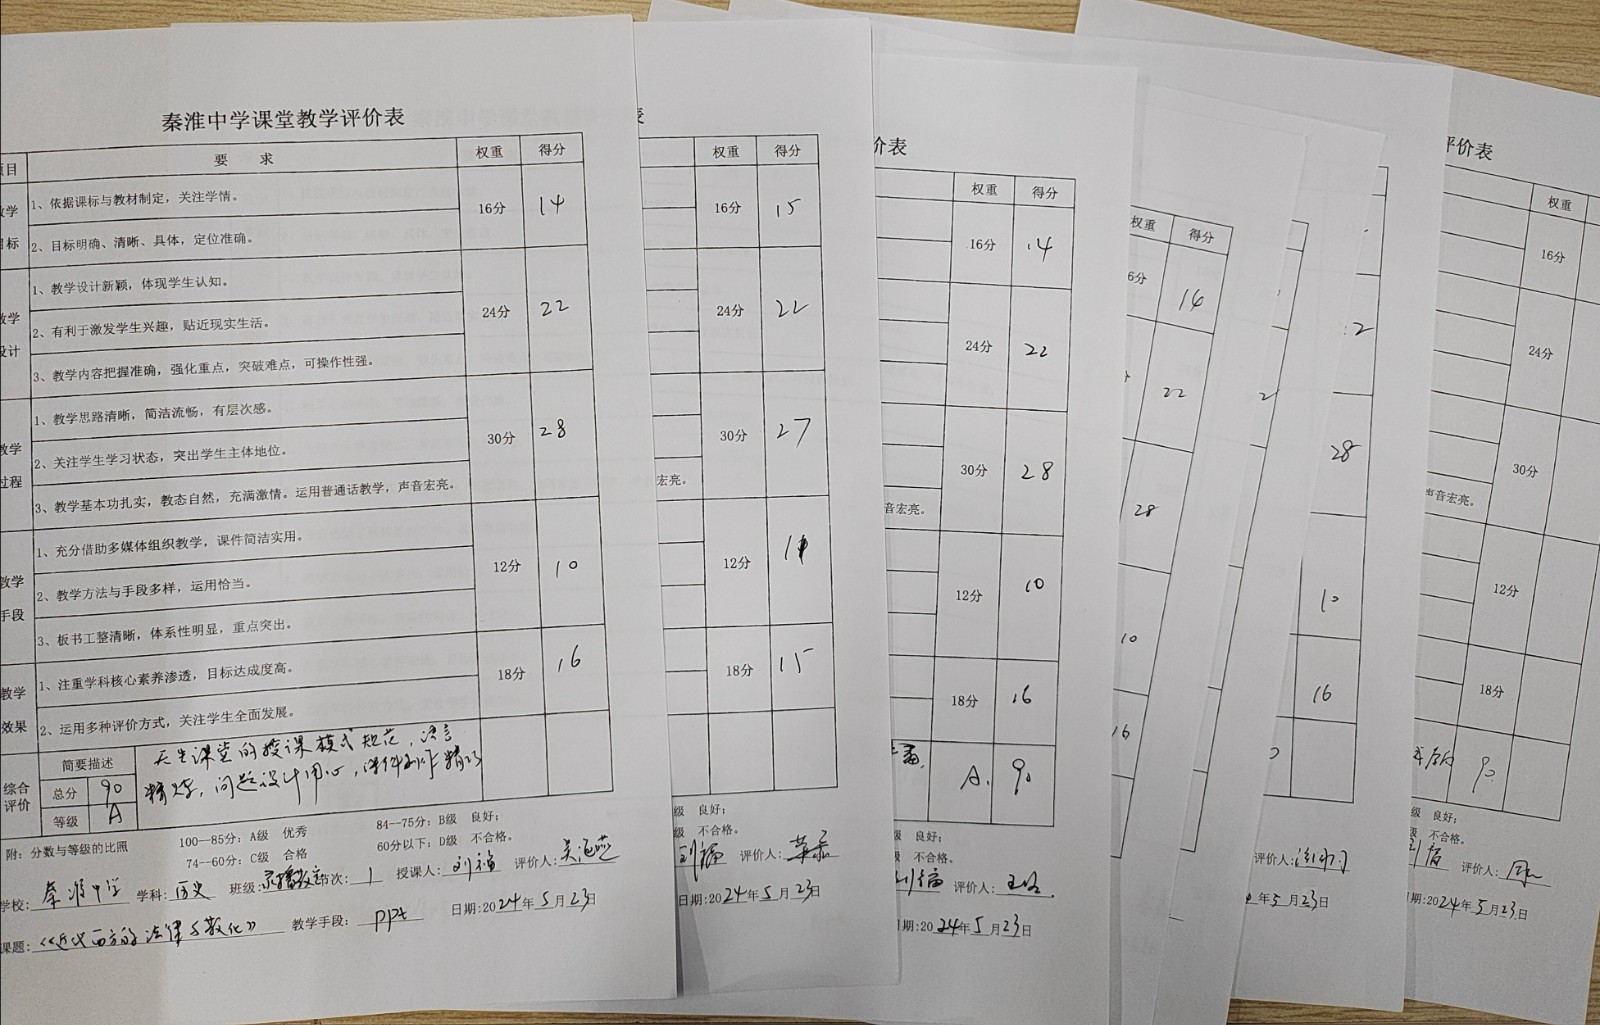 秦淮中学课堂教学评价表
项目 要 求 权重 得分
教学目标
1、依据课标与教材制定，关注学情。
2、目标明确、清晰、具体，定位准确。
16分 14
教学设计
1、教学设计新颖，体现学生认知。
2、有利于激发学生兴趣，贴近现实生活。
3、教学内容把握准确，强化重点，突破难点，可操作性强。
24分 22
教学过程
1、教学思路清晰，简洁流畅，有层次感。
2、关注学生学习状态，突出学生主体地位。
3、教学基本功扎实，教态自然，充满激情。运用普通话教学，声音宏亮。
30分 28
教学手段
1、充分借助多媒体组织教学，课件简洁实用。
2、教学方法与手段多样，运用恰当。
3、板书工整清晰，体系性明显，重点突出。
12分 10
教学效果
1、注重学科核心素养渗透，目标达成度高。
2、运用多种评价方式，关注学生全面发展。
18分 16
综合评价
简要描述
课堂的授课模式规范，语言
精炼，问题设计用心，课件制作精巧
总分 90
等级 A
附：分数与等级的比照
100--85分：A级 优秀 84--75分：B级 良好；
74--60分：C级 合格 60分以下：D级 不合格。
学校：秦淮中学 学科：历史 班级：录播教室 节次：1 授课人： 评价人：吴海燕
课题：《近代西方的法律与教化》 教学手段：ppt 日期：2024年5月23日
表
权重 得分
16分 15
24分 22
30分 27
宏亮。
12分 11
18分 15
级 良好；
级 不合格。
评价人：
日期：2024年5月23日
价表
权重 得分
16分 14
24分 22
30分 28
音宏亮。
12分 10
18分 16
A. 90
级 良好；
不合格。
评价人：
期：2024年5月23日
权重 得分
6分 14
22
28
10
16
2
28
10
16
评价人：
年5月23日
评价表
权重
16分
24分
30分
声音宏亮。
12分
18分
90
级 良好；
不合格。
评价人：
日期：2024年5月23日